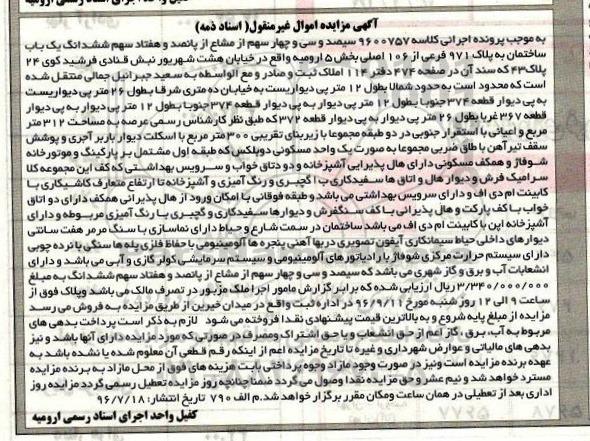 آگهی مزایده اموال غیرمنقول( اسناد ذمه)
به موجب پرونده اجرائی کلاسه ۹۶۰۰۷۵۷ سیصد و سی و چهار سهم از مشاع از پانصد و هفتاد سهم ششدانگ یک باب
ساختمان به پلاک ۹۷۱ فرعی از ۱۰۶ اصلی بخش ۵ ارومیه واقع در خیابان هشت شهریور نبش قنادی فرشید کوی ۲۴
پلاک ۴۳ که سند آن در صفحه ۴۷۴ دفتر ۱۱۴ املاک ثبت و صادر و مع الواسطه به سعید جبرائیل جمالی منتقل شده
است که محدود است به حدود شمالا بطول ۱۲ متر پی دیواریست به خیابان ده متری شرقا بطول ۲۶ متر پی دیواریست
به پی دیوار قطعه ۳۷۴ جنوبا بطول ۱۲ متر پی دیوار به پی دیوار قطعه ۳۷۴ جنوبا بطول ۱۲ متر پی دیوار به پی دیوار
قطعه ۳۶۷ غربا بطول ۲۶ متر پی دیوار به پی دیوار قطعه ۳۷۲ که طبق نظر کارشناس رسمی عرصه به مساحت ۳۱۲ متر
مربع و اعیانی با استقرار جنوبی در دو طبقه مجموعا با زیربنای تقریبی ۳۰۰ متر مربع با اسکلت دیوار باربر آجری و پوشش
سقف تیرآهن با طاق ضربی مجموعا به صورت یک واحد مسکونی دوبلکس که طبقه اول مشتمل بر پارکینگ و موتورخانه
شوفاژ و همکف مسکونی دارای هال پذیرایی آشپزخانه و دو دتاق خواب و سرویس بهداشتی که کف این مجموعه کلا
سرامیک فرش و دیوار هال و اتاق ها سفیدکاری با گچبری و رنگ آمیزی و آشپزخانه تا ارتفاع متعارف کاشیکاری با
کابینت ام دی اف و دارای سرویس بهداشتی می باشد و طبقه فوقانی با امکان ورود از هال پذیرائی همکف دارای دو اتاق
خواب با کف پارکت و هال پذیرایی با کف سنگفرش و دیوارها سفیدکاری و گچبری با رنگ آمیزی مربوطه و دارای
آشپزخانه اپن با کابینت ام دی اف می باشد ساختمان در سمت شارع و حیاط دارای نماسازی با سنگ مرمر هفت سانتی
دیوارهای داخلی حیاط سیمانکاری آیفون تصویری دربها آهنی پنجره ها آلومینیومی با حفاظ فلزی پله ها سنگی با نرده چوبی
دارای سیستم حرارت مرکزی شوفاژ با رادیاتورهای آلومینیومی و سیستم سرمایشی کولر گازی و آبی می باشد و دارای
انشعابات آب و برق و گاز شهری می باشد که سیصد و سی و چهار سهم از مشاع از پانصد و هفتاد سهم ششدانگ به مبلغ
۳/۳۴۰/۰۰۰/۰۰۰ ریال ارزیابی شده که برابر گزارش مامور اجرا ملک مزبور در تصرف مالک می باشد و پلاک فوق از
ساعت ۹ الی ۱۲ روز شنبه مورخ ۹۶/۹/۱۱ در اداره ثبت واقع در میدان خیرین از طریق مزایده به فروش می رسد
مزایده از مبلغ پایه شروع و به بالاترین قیمت پیشنهادی نقدا فروخته می شود لازم به ذکر است پرداخت بدهی های
مربوط به آب، برق ، گاز اعم از حق انشعاب و یا حق اشتراک و مصرف در صورتی که مورد مزایده دارای آنها باشد و نیز
بدهی های مالیاتی و عوارض شهرداری و غیره تا تاریخ مزایده اعم از اینکه رقم قطعی آن معلوم شده یا نشده باشد به
عهده برنده مزایده است و نیز در صورت وجود مازاد وجوه پرداختی بابت هزینه های فوق از محل مازاد به برنده مزایده
مسترد خواهد شد و نیم عشر و حق مزایده نقدا وصول می گردد ضمنا چنانچه روز مزایده تعطیل رسمی گردد مزایده روز
اداری بعد از تعطیلی در همان ساعت و مکان مقرر برگزار خواهد شد.م الف ۷۹۰ تاریخ انتشار: ۹۶/۷/۱۸
کفیل واحد اجرای اسناد رسمی ارومیه